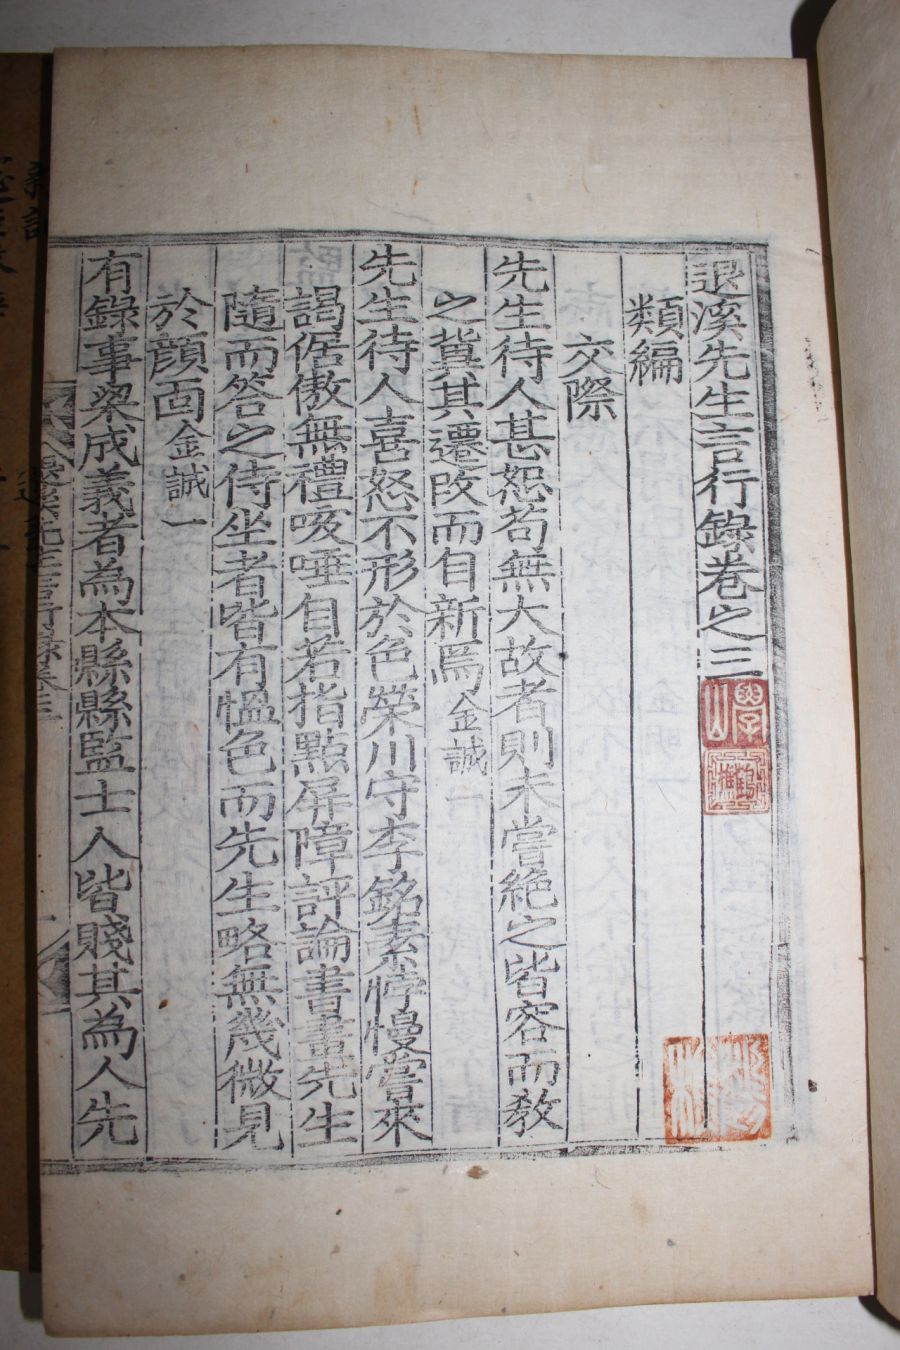 退溪先生言行錄卷之三
類編
交際
先生待人甚恕苟無大故者則未嘗絶之皆容而敎
之冀其遷改而自新焉金誠一
先生待人喜怒不形於色榮川守李銘素悖慢嘗來
謁倨傲無禮咳唾自若指點屏障評論書畫先生
隨而答之侍坐者皆有慍色而先生略無幾微見
於顔面金誠一
有錄事梁成義者為本縣縣監士人皆賤其為人先